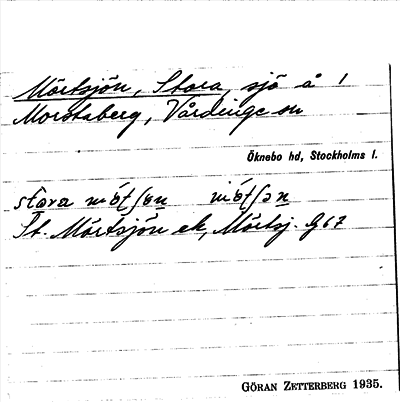 Mörtsjön, Stora, sjö å 1
Morstaberg, Vårdinge sn
Öknebo hd, Stockholms l.
stora
St. Mörtsjön ek, Mörtsj. G67
GÖRAN ZETTERBERG 1935.